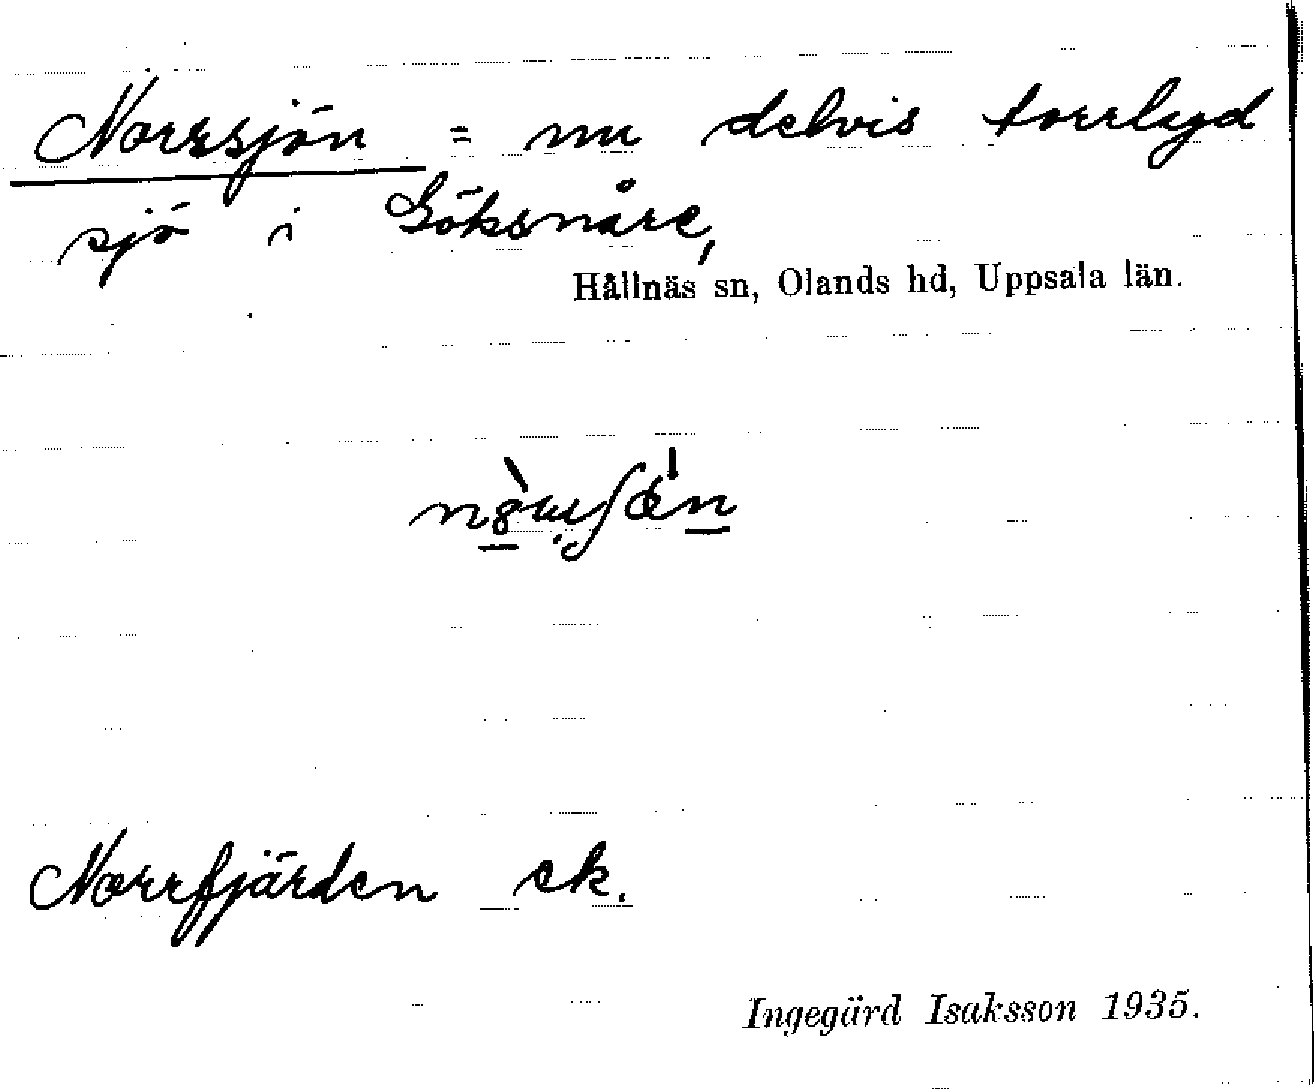 Norrsjön = nu delvis torrlagd
sjö i Göksnåre,
Hållnäs sn, Olands hd, Uppsala län.
Norrfjärden ek.
Ingegärd Isaksson 1935.